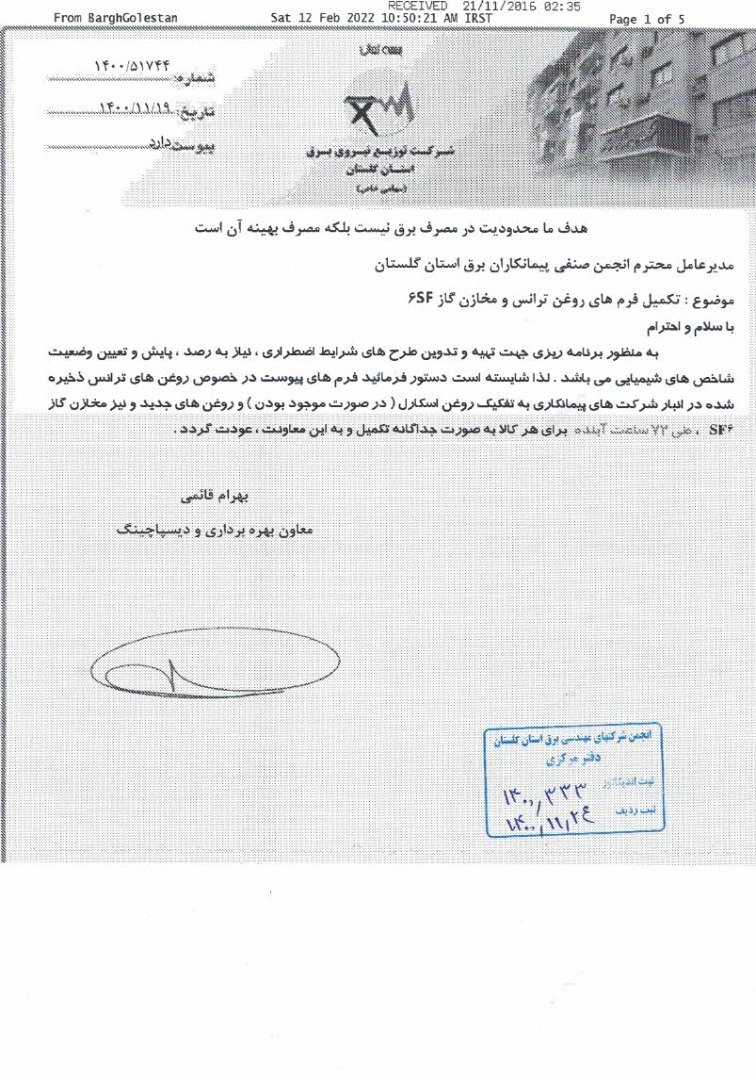 RECEIVED 21/11/2016 02:35
From BarghGolestan Sat 12 Feb 2022 10:50:21 AM IRST Page 1 of 5
بسمه تعالی
شماره: ۱۴۰۰/۵۱۷۴۴
تاریخ: ۱۴۰۰/۱۱/۱۹
پیوست: دارد
شرکت توزیع نیروی برق
استان گلستان
(سهامی خاص)
هدف ما محدودیت در مصرف برق نیست بلکه مصرف بهینه آن است
مدیرعامل محترم انجمن صنفی پیمانکاران برق استان گلستان
موضوع : تکمیل فرم های روغن ترانس و مخازن گاز ۶SF
با سلام و احترام
به منظور برنامه ریزی جهت تهیه و تدوین طرح های شرایط اضطراری ، نیاز به رصد ، پایش و تعیین وضعیت
شاخص های شیمیایی می باشد . لذا شایسته است دستور فرمائید فرم های پیوست در خصوص روغن های ترانس ذخیره
شده در انبار شرکت های پیمانکاری به تفکیک روغن اسکارل ( در صورت موجود بودن ) و روغن های جدید و نیز مخازن گاز
SF۶ ، طی ۷۲ ساعت آینده برای هر کالا به صورت جداگانه تکمیل و به این معاونت ، عودت گردد .
بهرام قائمی
معاون بهره برداری و دیسپاچینگ
انجمن شرکتهای مهندسی برق استان گلستان
دفتر مرکزی
ثبت اندیکاتور ۱۴۰۰/۳۳۳
ثبت ردیف ۱۴۰۰/۱۱/۲۴